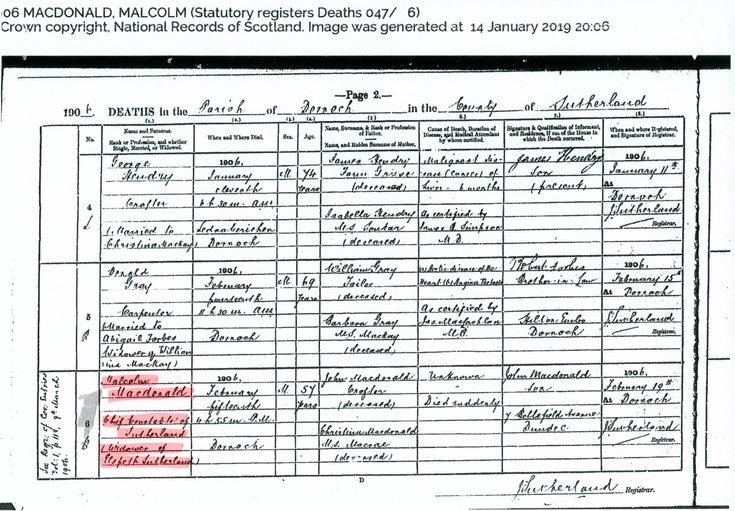 06 MACDONALD, MALCOLM (Statutory registers Deaths 047/ 6)
Crown copyright, National Records of Scotland. Image was generated at 14 January 2019 20:06
—Page 2.—
1906. DEATHS in the Parish of Dornoch in the County of Sutherland
(1.) (2.) (3.) (4.) (5.) (6.) (7.) (8.)
No.
Name and Surname.
Rank or Profession, and whether Single, Married, or Widowed.
When and Where Died.
Sex.
Age.
Name, Surname, & Rank or Profession of Father.
Name, and Maiden Surname of Mother.
Cause of Death, Duration of Disease, and Medical Attendant by whom certified.
Signature & Qualification of Informant, and Residence, if out of the House in which the Death occurred.
When and where Registered, and Signature of Registrar.
4
George
Hendry
Crofter
(Married to
Christina Mackay)
1906,
January
eleventh
6 h 30 m. A.M.
Dornoch
M
74
years
James Hendry
Farm Grieve
(deceased)
Isabella Hendry
M.S. Soutar
(deceased)
Malignant dis-
ease (Cancer) of
Liver - 6 months
As certified by
James A Simpson
M.B.
James Hendry
Son
(present)
1906,
January 11th
At
Dornoch
J Sutherland
Registrar.
5
Donald
Gray
Carpenter
Married to
Abigail Forbes
Widower of William
ina Mackay)
1906,
February
fourteenth
11 h 30 m. A.M.
Dornoch
M
69
Years
William Gray
Tailor
(deceased)
Barbara Gray
M.S. Mackay
(deceased)
Heart (b) Angina Pectoris
As certified by
M.B.
Robert Forbes
Brother-in-Law
Hilton Embo
Dornoch
1906,
February 15th
At Dornoch
J Sutherland
Registrar.
6
Malcolm
Macdonald
Chief Constable of
Sutherland
(Widower of
Elspeth Sutherland)
1906,
February
fifteenth
4 h 55 m. P.M.
Dornoch
M.
57
years
John Macdonald
Crofter
(deceased)
Christina Macdonald
M.S. Macrae
(deceased)
Unknown
Died suddenly
John Macdonald
Son
Dundee
1906,
February 19th
At Dornoch
J Sutherland
Registrar.
See Regr. of Cor. Entries
Vol. 1, p 118, 9th March
1906.
D
J Sutherland Registrar.